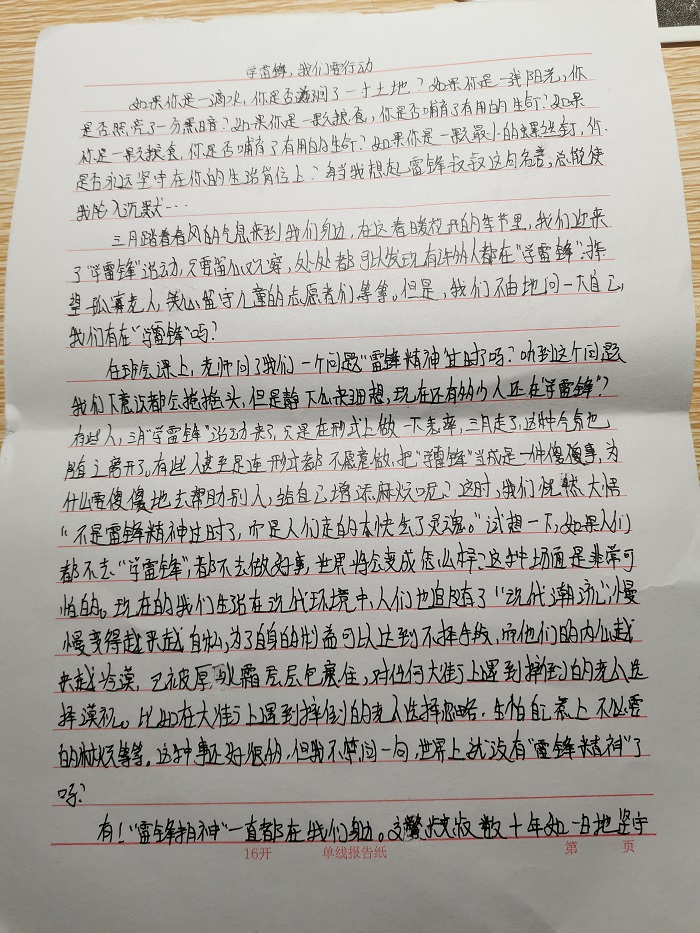 学雷锋,我们要行动
如果你是一滴水,你是否滋润了一寸土地?如果你是一线阳光,你
是否照亮了一分黑暗?如果你是一颗粮食,你是否哺育了有用的生命?如果
你是一颗粮食,你是否哺育了有用的生命?如果你是一颗最小的螺丝钉,你
是否永远坚守在你的生活岗位上?每当我想起雷锋叔叔这句名言,总能使
我陷入沉默…
三月踏着春风的气息来到我们身边,在这春暖花开的季节里,我们迎来
了"学雷锋"活动,只要留心观察,处处都可以发现有许多人都在"学雷锋":探
望孤寡老人,关心留守儿童的志愿者们等等。但是,我们不由地问一下自己,
我们有在"学雷锋"吗?
在班会课上,老师问了我们一个问题"雷锋精神过时了吗?听到这个问题
我们下意识都会摇摇头,但是静下心来细想,现在还有多少人还在"学雷锋"?
有些人,三月"学雷锋"活动来了,只是在形式上做一下表率,三月走了,这种气氛也
随之离开了。有些人甚至是连形式都不愿意做,把"学雷锋"当成是一件傻傻事,为
什么要傻傻地去帮助别人,给自己增添麻烦呢?这时,我们恍然大悟
"不是雷锋精神过时了,而是人们走的太快丢了灵魂。"试想一下,如果人们
都不去"学雷锋",都不去做好事,世界将会变成怎么样?这种场面是非常可
怕的。现在的我们生活在现代环境中,人们也追随着了"现代潮流",慢
慢变得越来越自私,为了自身的利益可以达到不择手段,而他们的内心越
来越冷漠,已被厚冰霜层层包裹住,对任何大街上遇到摔倒的老人选
择漠视。比如在大街上遇到摔倒的老人选择忽略,生怕自己惹上不必要
的麻烦等等。这种事还好很多,但我不禁问一问,世界上就没有"雷锋精神"了
吗?
有!"雷锋精神"一直都在我们身边。交警叔叔数十年如一日地坚守
16开 单线报告纸 第 页